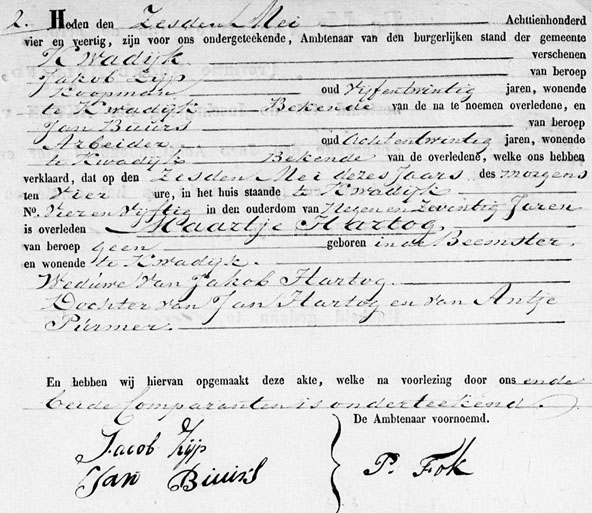 2. Heden den Zesden Mei Achttienhonderd
vier en veertig, zijn voor ons ondergeteekende, Ambtenaar van den burgerlijken stand der gemeente
Kwadijk verschenen
Jakob Zijp van beroep
Koopman oud vijfentwintig jaren, wonende
te Kwadijk Bekende van de na te noemen overledene, en
Jan Buurs van beroep
Arbeider oud achtentwintig jaren, wonende
te Kwadijk Bekende van de overledene, welke ons hebben
verklaard, dat op den Zesden Mei dezes jaars des morgens
ten vier ure, in het huis staande te Kwadijk
No. Vier en vijftig in den ouderdom van Negen en Zeventig Jaren
is overleden Maartje Hartog,
van beroep geen geboren in de Beemster,
en wonende te Kwadijk.
Weduwe van Jakob Hartog
Dochter van Jan Hartog en van Antje
Purmer.
En hebben wij hiervan opgemaakt deze akte, welke na voorlezing door ons ende
beide Comparanten is onderteekend.
De Ambtenaar voornoemd.
Jacob Zijp
Jan Buurs
P. Fok